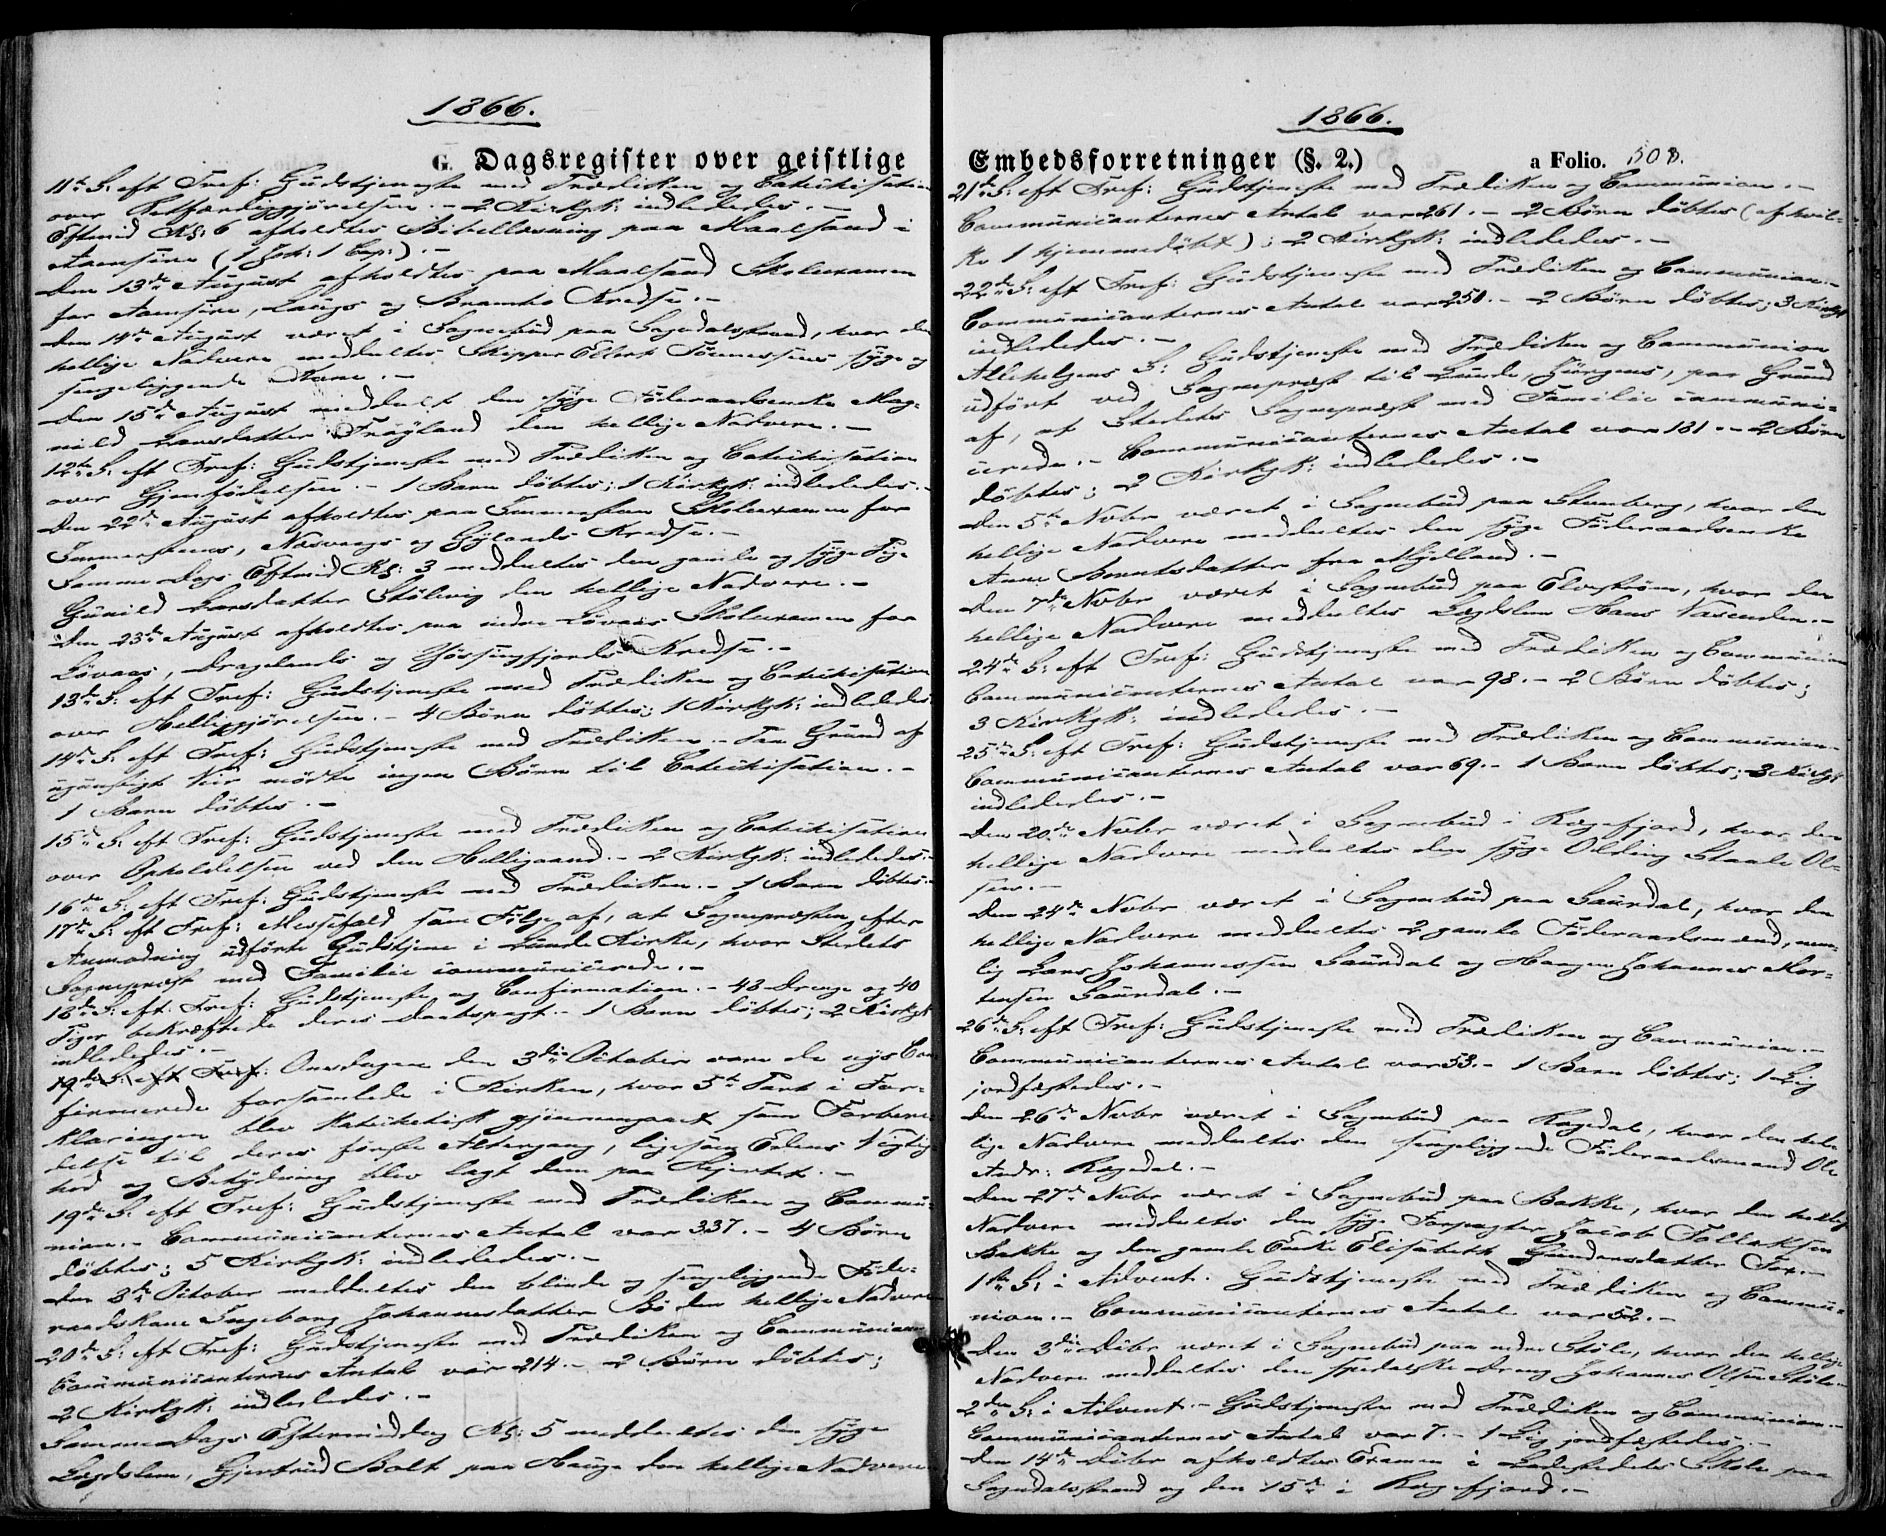 1866.
G. Dagsregister over geistlige
11te S: eft Tref: Gudstjeneste med Prædiken og Catechisation
over Retfærdiggjørelsen. – 2 Kirkgk: indlededes. –
Eftmid Kl: 6 afholdtes Bibellæsning paa Maalsand i
Aamsire (1 Joh: 1 Cap:). –
Den 13de August afholdtes paa Maalsand Skoleexamen
for Aamsire, Laugs og Bramho Kredse. –
Den 14de August været i Sognebud paa Sogndalsstrand, hvor den
hellige Nadvere meddeltes Skipper Ellert Tønnessens syge og
sengeliggende Kone. –
Den 15de August meddelt den syge Føderaadsenke Mag-
nild Larsdatter Frøyland den hellige Nadvere. –
12te S: eft Tref: Gudstjeneste med Prædiken og Catechisation
over Gjenfødelsen. – 1 Barn døbtes; 1 Kirkgk: indlededes. –
Den 22de August afholdtes paa Immersteen Skoleexamen for
Immersteens, Nesvaags og Gylands Kredse. –
Samme Dags Eftmid Kl: 3 meddeltes den gamle og syge Pige
Gunild Larsdatter Stølevig den hellige Nadvere. –
Den 23de August afholdtes paa indre Løvaas Skoleexamen for
Løvaas, Dragelands og Jøssingfjords Kredse. –
13de S: eft Tref: Gudstjeneste med Prædiken og Catechisation
over Helliggjørelsen. – 4 Børn døbtes; 1 Kirkgk: indlededes
14de S: eft Tref: Gudstjeneste med Prædiken. – Paa Grund af
ugunstigt Veir mødte ingen Børn til Catechisation. –
1 Barn døbtes. –
15de S: eft Tref: Gudstjeneste med Prædiken og Catechisation
over Opholdelsen ved den Helligaand. – 2 Kirkgk: indlededes. –
16de S: eft Tref: Gudstjeneste med Prædiken. – 1 Barn døbtes. –
17de S: eft Tref: Messefald som Følge af, at Sognepræsten efter
Anmodning udførte Gudstjene i Lunde Kirke, hvor Stedets
Sognepræst med Familie communicerede. –
18de S: eft. Tref: Gudstjeneste og Confirmation. – 43 Drenge og 40
Piger bekræftede deres Daabspagt. – 1 Barn døbtes; 2 Kirkgk
indlededes. –
19de S: eft Tref: Onsdagen den 3die October vare de nys Con
firmerede forsamlede i Kirken, hvor 5te Part i For-
klaringen blev katechetisk gjennemgaaet som Forbere
delse til deres første Altergang, ligesom Edens Vigtig
hed og Betydning blev lagt dem paa Hjertet. –
19de S: eft Tref: Gudstjeneste med Prædiken og Commu-
nion. – Communicanternes Antal var 337. – 4 Børn
døbtes; 5 Kirkgk: indlededes. –
Den 8de October meddeltes den blinde og sengeliggende Føde-
raadskone Ingeborg Johannesdatter Bø den hellige Nadvere
20de S: eft Tref: Gudstjeneste med Prædiken og Communion
Communicanternes Antal var 214. – 2 Børn døbtes;
2 Kirkgk: indlededes. –
Samme Dags Eftermiddag Kl: 5 meddeltes den syge
Lægdslem, Gjertrud Bolt paa Hauge den hellige Nadvere
1866.
Embedsforretninger (§. 2.) a Folio. 508.
21de S: eft Tref: Gudstjeneste med Prædiken og Communion. –
Communicanternes Antal var 261. – 2 Børn døbtes (af hvil-
ke 1 hjemmedøbt); 2 Kirkgk: indlededes. –
22de S: eft Tref: Gudstjeneste med Prædiken og Communion. –
Communicanternes Antal var 250. – 2 Børn døbtes; 3 Kirkgk
indlededes. –
Allehelgens S: Gudstjeneste med Prædiken og Communion
udført ved Sognepræst til Lunde, Jürgens, paa Grund
af, at Stedets Sognepræst med Familie communi-
cerede. – Communicanternes Antal var 181. – 2 Børn
døbtes; 2 Kirkgk: indlededes. –
Den 5te Novbr været i Sognebud paa Steenberg, hvor den
hellige Nadvere meddeltes den syge Føderaadsenke
Anne Berntsdatter fra Mydland. –
Den 7de Novbr været i Sognebud paa Elvestrøm, hvor den
hellige Nadvere meddeltes Lægdslem Hans Vasenden. –
24de S: eft Tref: Gudstjeneste med Prædiken og Communion
Communicanternes Antal var 98. – 2 Børn døbtes;
3 Kirkgk: indlededes. –
25de S: eft Tref: Gudstjeneste med Prædiken og Communion.
Communicanternes Antal var 69. – 1 Barn døbtes; 3 Kirkgk
indlededes. –
Den 20de Novbr været i Sognebud i Rægefjord, hvor den
hellige Nadvere meddeltes den syge Olding Staale Ol-
sen. –
Den 24de Novbr været i Sognebud paa Saurdal, hvor den
hellige Nadvere meddeltes 2 gamle Føderaadsmænd, nem-
lig Lars Johannessen Saurdal og Haagen Johannes Mor-
tensen Saurdal. –
26de S: eft Tref: Gudstjeneste med Prædiken og Communion. –
Communicanternes Antal var 53. – 1 Barn døbtes; 1 Lig
jordfæstedes. –
Den 26de Novbr været i Sognebud paa Rægedal, hvor den hel-
lige Nadvere meddeltes den sengeliggende Føderaadsmand Ole
Andr: Rægedal. –
Den 27de Novbr været i Sognebud paa Bakke, hvor den hellige
Nadvere meddeltes den syge Forpagter Jacob Tollaksen
Bakke og den gamle Enke Elisabeth Gundersdatter
1ste S: i Advent. Gudstjeneste med Prædiken og Commu-
nion. – Communicanternes Antal var 52. –
Den 3die Decbr været i Sognebud paa nedre Støle, hvor den hellige
Nadvere meddeltes den spedalske Dreng Johannes Olsen Støle
2den S: i Advent. – Gudstjeneste med Prædiken og Communion. –
Communicanternes Antal var 7. – 1 Lig jordfæstedes. –
Den 14de Decbr afholdtes Examen i Ladestedets Skole paa
Sogndalsstrand og den 15de i Rægefjord. –